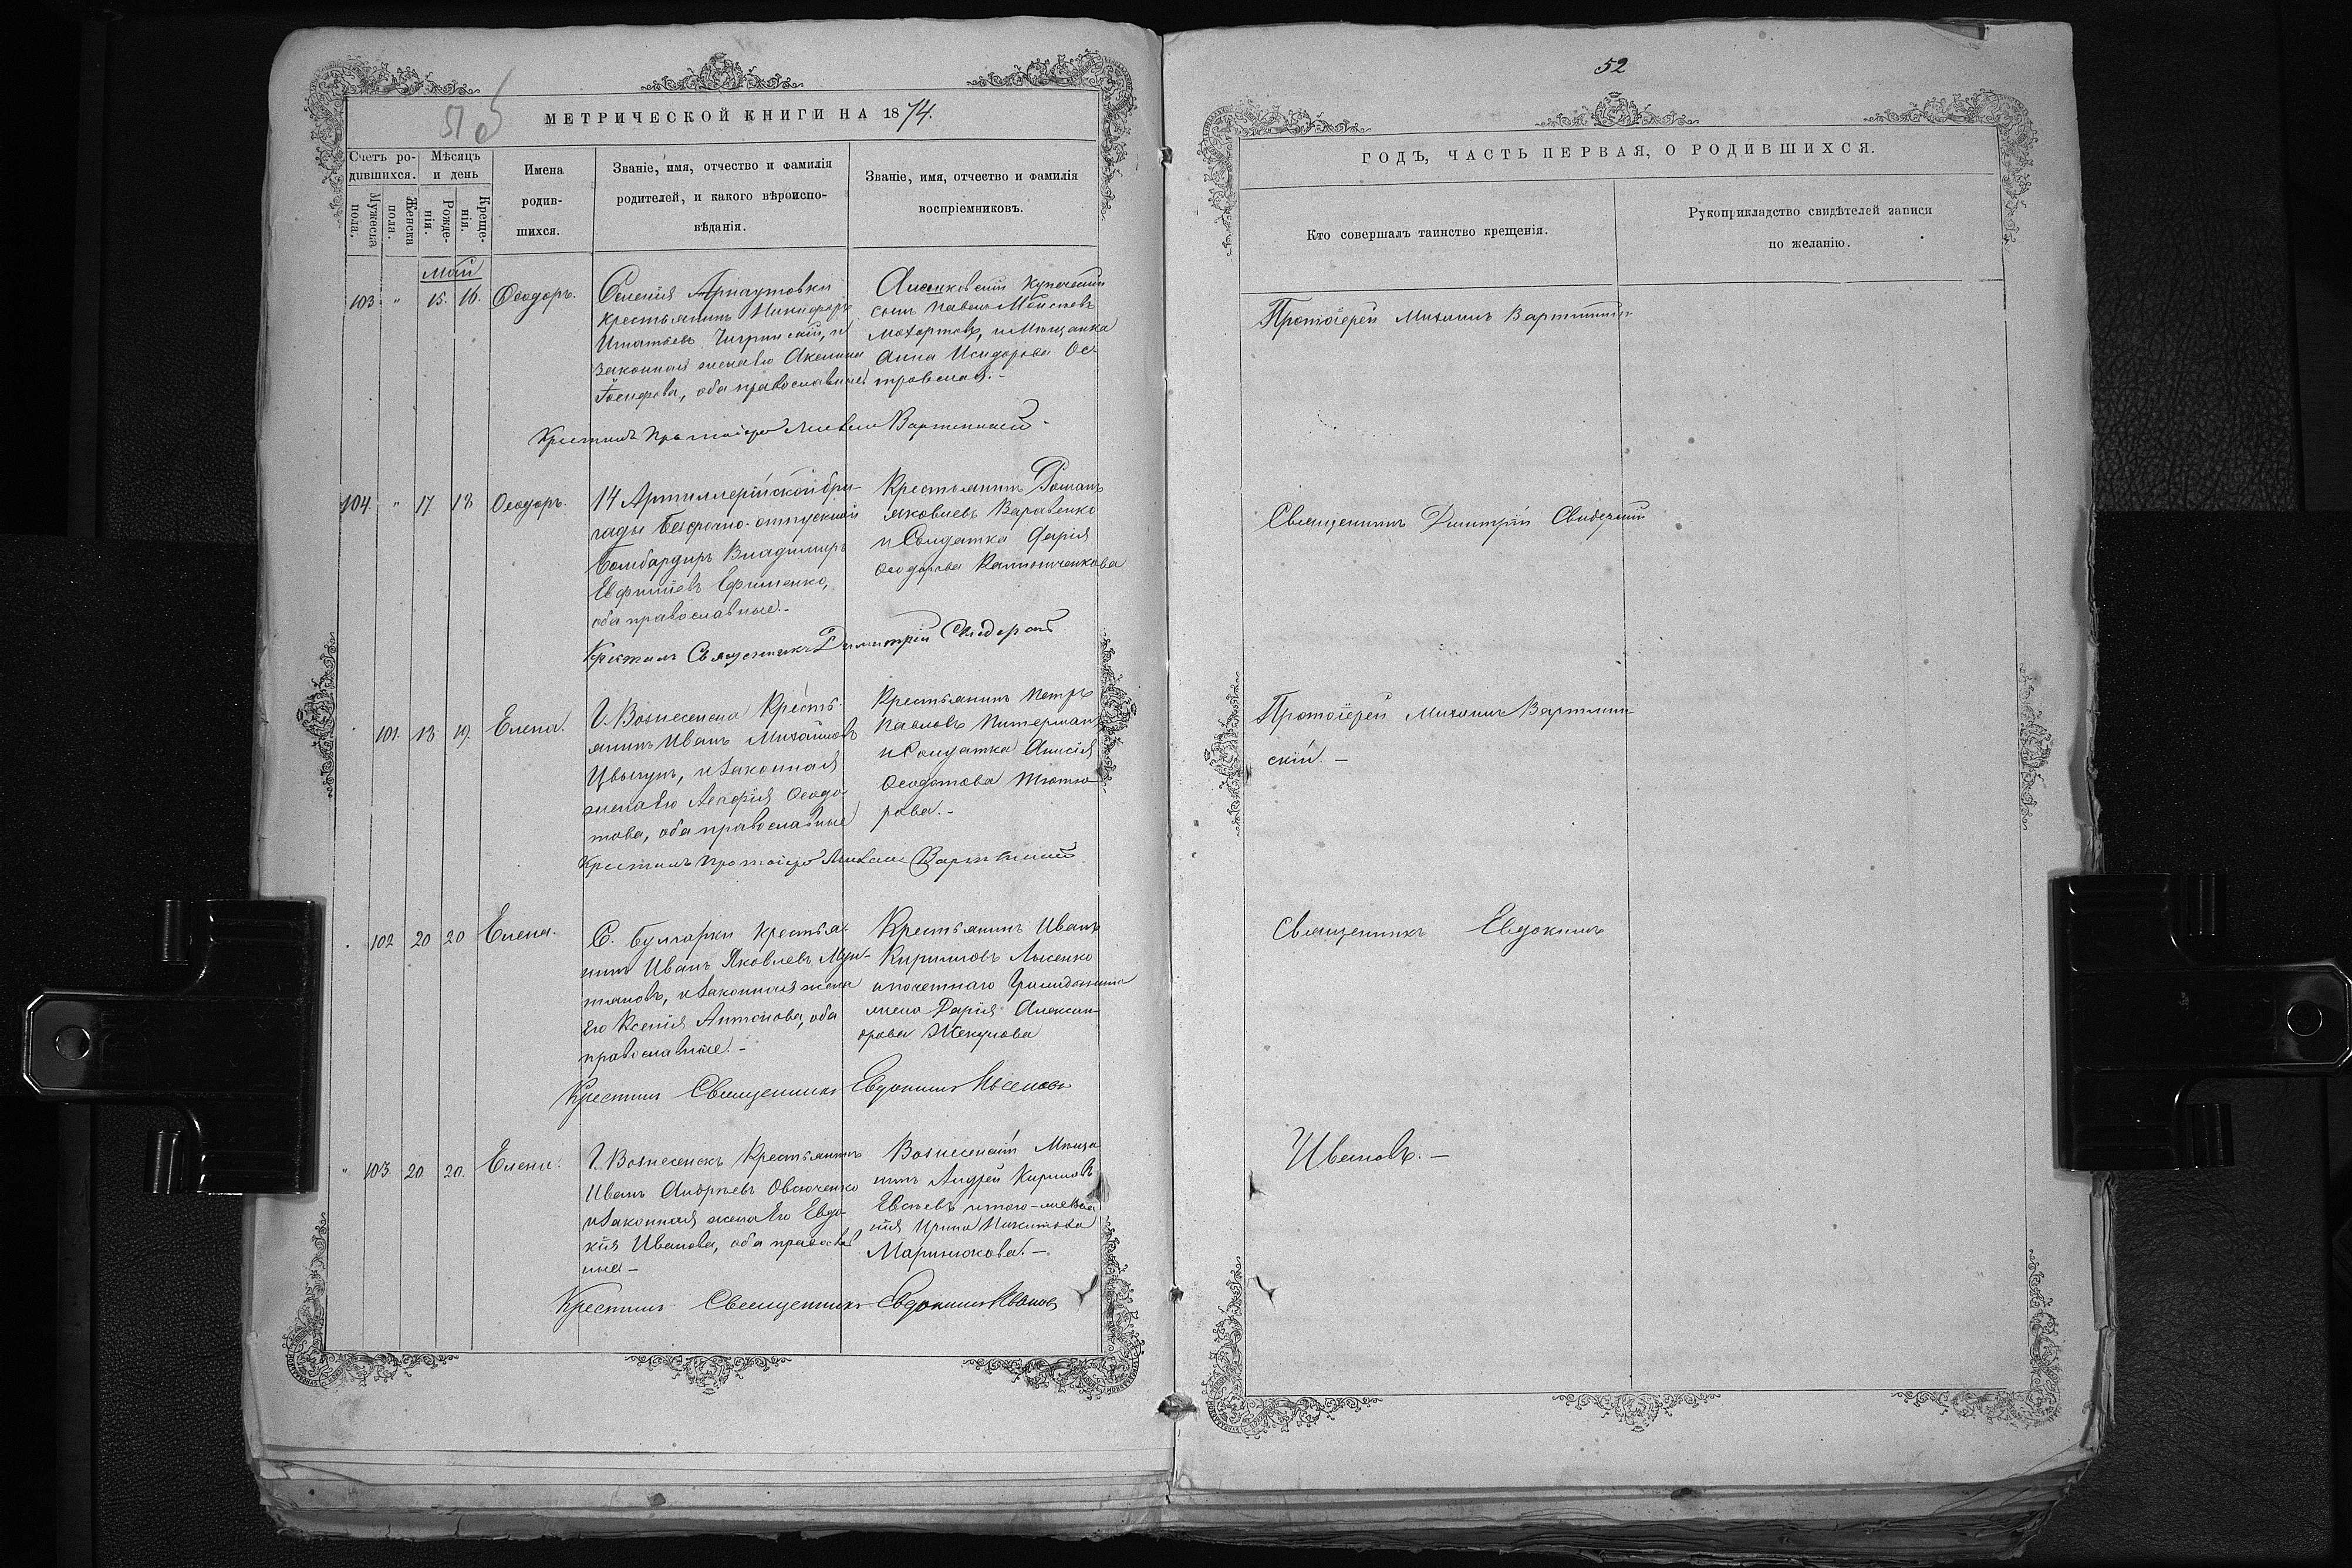 51 об
МЕТРИЧЕСКОЙ КНИГИ НА 1874.
Счетъ ро-
дившихся.
Мужеска
пола.
Женска
пола.
Мѣсяцъ
и день
Рожде-
нія.
Креще-
нія.
Имена
родив-
шихся.
Званіе, имя, отчество и фамилія
родителей, и какого вѣроиспо-
вѣданія.
Званіе, имя, отчество и фамилія
воспріемниковъ.
Май
103 " 15. 16. Ѳеодоръ.
Селенія Арнаутовки
крестьянинъ Никифоръ
Игнатьевъ и
законная жена его Акелина
Іосифова, оба православные
купеческій
сынъ Павелъ Моисеевъ
и Мѣщанка
Анна Исидорова Ос-
тровская.-
Крестилъ Протоіерей Михаилъ
104. " 17 18 Ѳеодоръ.
14 Артиллерійской бри-
гады безсрочно-отпускный
Бомбардиръ Владимиръ
Евфиміевъ Ефименко,
оба православные.-
Крестьянинъ Романъ
Яковлевъ Варавенко
и Солдатка Дарія
Ѳеодорова Калиниченкова
Крестилъ Священникъ Димитрій
" 101. 18 19. Елена.
Г. Вознесенска Кресть-
янинъ Иванъ Михайловъ
Цвыгунъ, и законная
жена его Агафія Ѳеодо-
това, оба православные
Крестьянинъ Петръ
Павловъ Питерманъ
и Солдатка Анисія
Ѳеодотова Тютю-
рова.-
Крестилъ Протоіерей Михаилъ
" 102 20 20 Елена.
С. Булгарки крестья-
нинъ Иванъ Яковлевъ Мун-
тяновъ, и законная жена
его Ксенія Антонова, оба
православные.-
Крестьянинъ Иванъ
Кирилловъ Лысенко
и почетнаго Гражданина
жена Дарія Алексан-
дрова Жекулова
Крестилъ Священникъ Евдокимъ Ивановъ
" 103 20 20. Елена.
Г. Вознесенскъ Крестьянинъ
Иванъ Андреевъ Овсюченко
и законная жена его Евдо-
кія Иванова, оба православ
ные-
Вознесенскій Мѣща
нинъ Андрей Кирилловъ
Евсѣевъ
Ирина Никитова
Маринюкова.-
Крестилъ Священникъ Евдокимъ Ивановъ
52
ГОДЪ, ЧАСТЬ ПЕРВАЯ, О РОДИВШИХСЯ.
Кто совершалъ таинство крещенія.
Рукоприкладство свидѣтелей записи
по желанію.
Протоіерей Михаилъ
Священникъ Димитрій
Протоіерей Михаилъ
скій.-
Священникъ Евдокимъ
Ивановъ.-